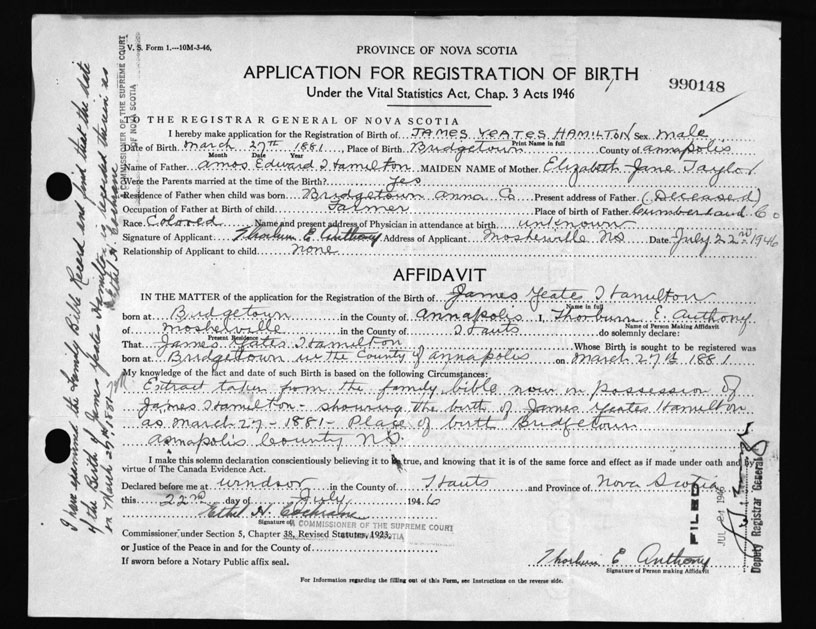 V. S. Form 1.—10M-3-46.
PROVINCE OF NOVA SCOTIA
APPLICATION FOR REGISTRATION OF BIRTH
990148
Under the Vital Statistics Act, Chap. 3 Acts 1946
TO THE REGISTRAR GENERAL OF NOVA SCOTIA
I hereby make application for the Registration of Birth of JAMES YEATES HAMILTON Sex male
Print Name in full
Date of Birth March 27th 1881, Place of Birth Bridgetown County of Annapolis
Month Date Year
Name of Father Amos Edward Hamilton MAIDEN NAME of Mother Elizabeth Jane Taylor
Were the Parents married at the time of the Birth? Yes
Residence of Father when child was born Bridgetown Anna Co Present address of Father (Deceased)
Occupation of Father at Birth of child Farmer Place of birth of Father Cumberland Co
Race Colored Name and present address of Physician in attendance at birth unknown
Signature of Applicant Thorburn E Anthony Address of Applicant Mosherville NS Date July 22nd 1946
Relationship of Applicant to child none
AFFIDAVIT
IN THE MATTER of the application for the Registration of the Birth of James Yeates Hamilton
Name in full
born at Bridgetown in the County of Annapolis I, Thorburn E. Anthony
Name of Person Making Affidavit
of Mosherville in the County of Hants do solemnly declare:
Present Residence
That James Yates Hamilton Whose Birth is sought to be registered was
born at Bridgetown in the County of Annapolis on March 27th 1881
My knowledge of the fact and date of such Birth is based on the following Circumstances:
Extract taken from the family bible now in possession of
James Hamilton - showing the birth of James Yeates Hamilton
as March 27 - 1881 - Place of birth Bridgetown
Annapolis County NS
I make this solemn declaration conscientiously believing it to be true, and knowing that it is of the same force and effect as if made under oath and by
virtue of The Canada Evidence Act.
Declared before me at Windsor in the County of Hants and Province of Nova Scotia
this 22nd day of July 1946
Ethel H. Cochrane
Signature of
A COMMISSIONER OF THE SUPREME COURT
OF NOVA SCOTIA
Commissioner under Section 5, Chapter 38, Revised Statutes, 1923,
or Justice of the Peace in and for the County of
If sworn before a Notary Public affix seal.
Thorburn E Anthony
Signature of Person making Affidavit
For Information regarding the filling out of this Form, see Instructions on the reverse side.
I have examined the Family Bible Record and find that the date
of the Birth of James Yeates Hamilton is recorded therein as
on March 27th 1881
Ethel H. Cochrane
A COMMISSIONER OF THE SUPREME COURT
OF NOVA SCOTIA
FILED
JUL 24 1946
Deputy Registrar General